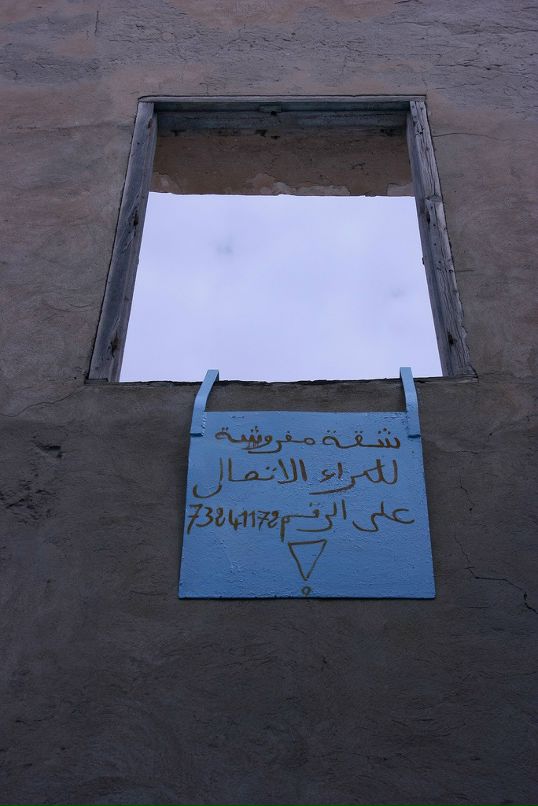 شقة مفروشة
للكراء الاتصال
على الرقم 73241172